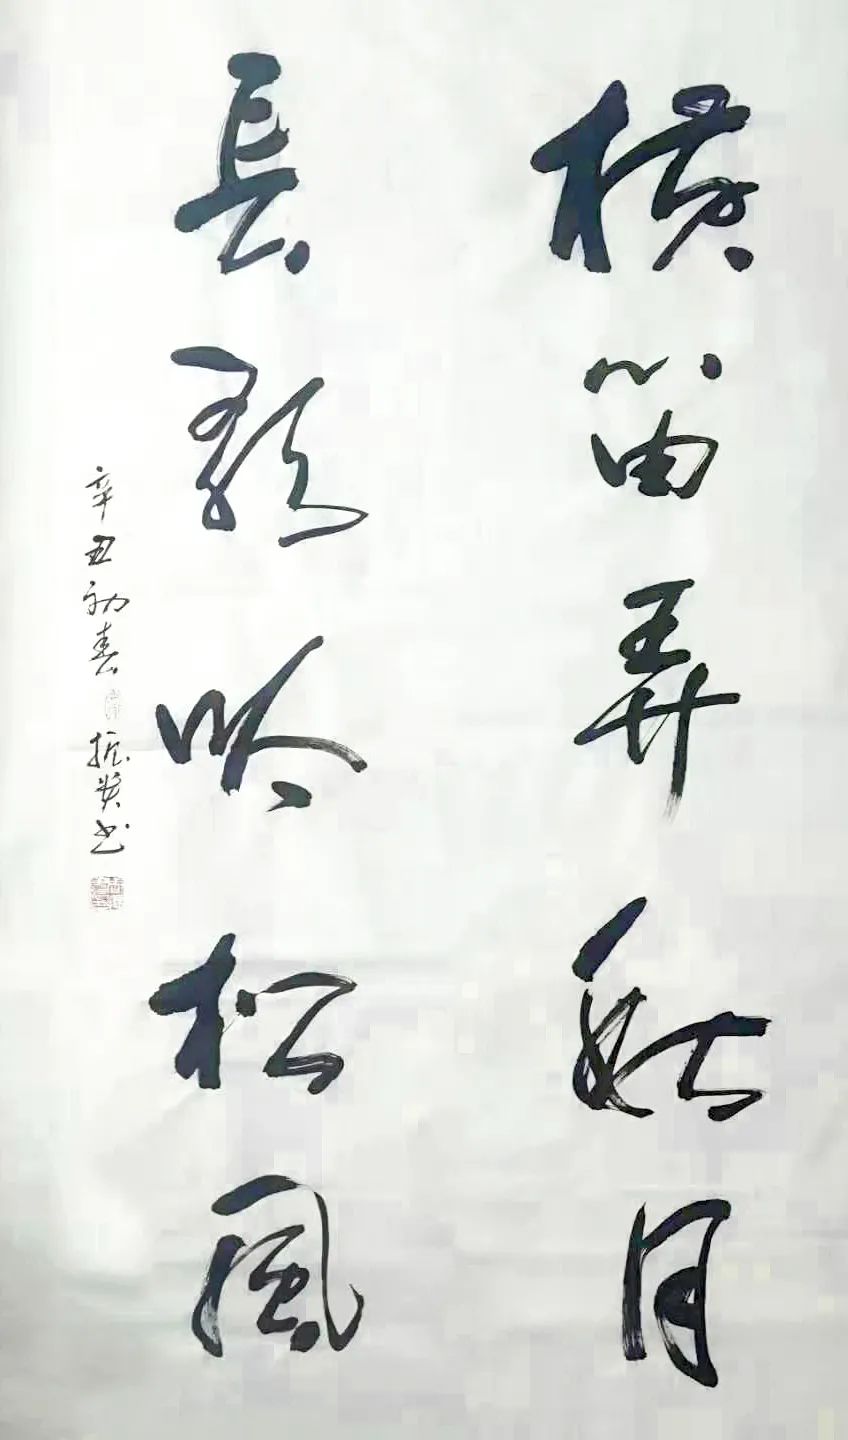 横笛弄秋月
長歌吟松風
辛丑初春 振 书